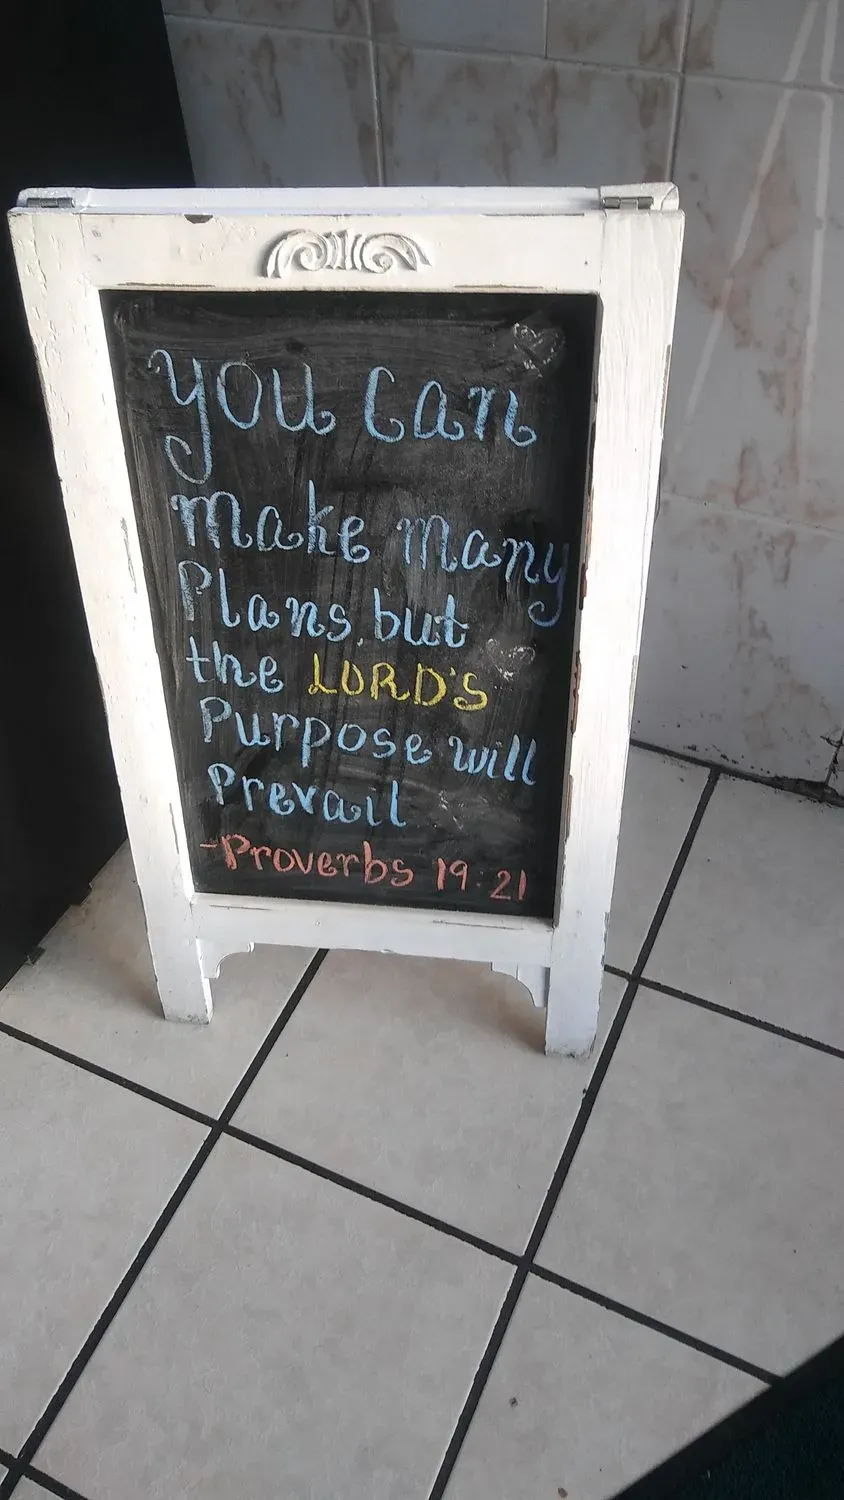 you can
make many
Plans, but
the LORD'S
Purpose will
Prevail
-Proverbs 19:21